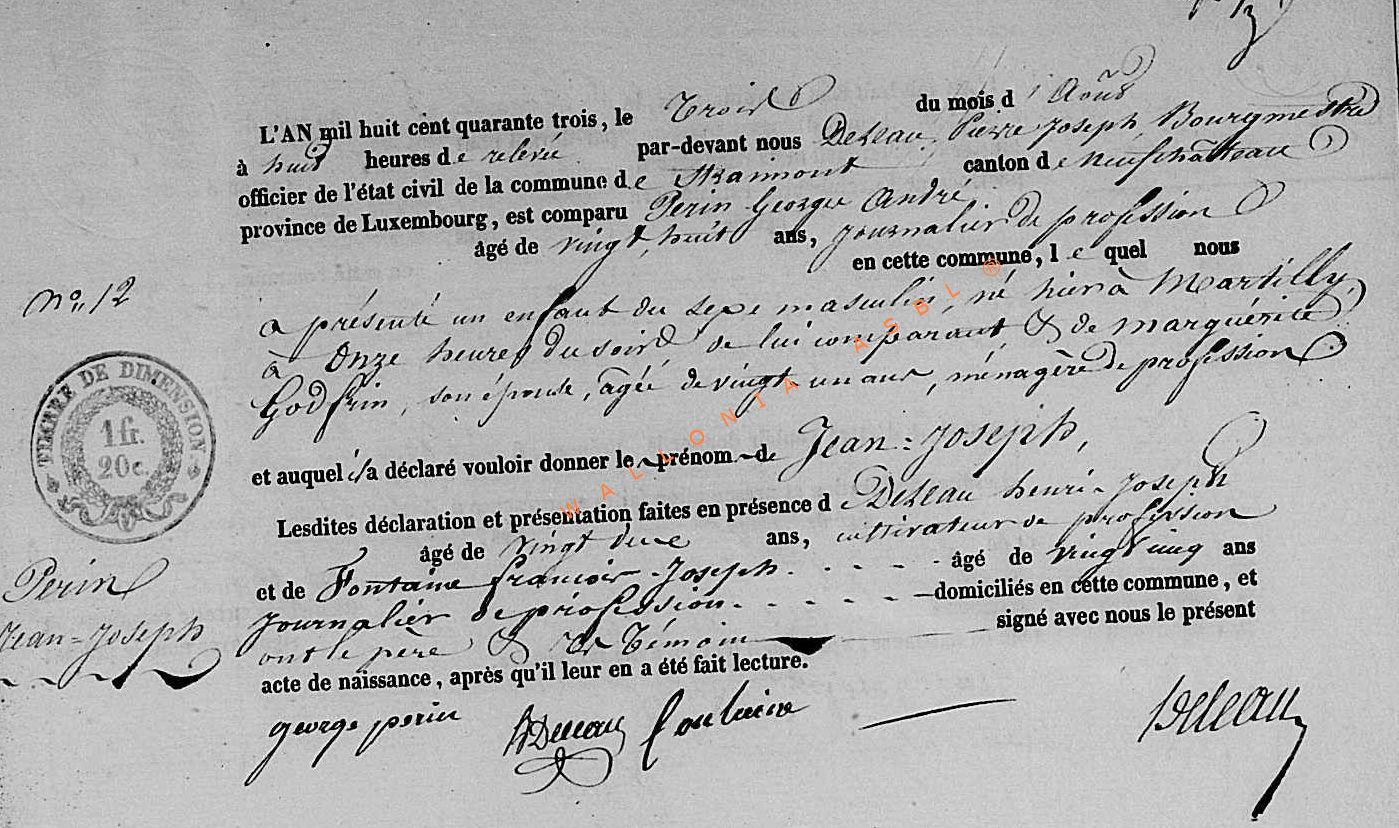 L'AN mil huit cent quarante trois, le Trois du mois d'Août
à huit heures de relevée par-devant nous Deleau, Pierre Joseph, Bourgmestre
officier de l'état civil de la commune de Straimont canton de Neufchâteau
province de Luxembourg, est comparu Perin George André
âgé de vingt, huit ans, journalier de profession
en cette commune, le quel nous
No. 12
a présenté un enfant du sexe masculin, né hier à Martilly,
à Onze heures du soir, de lui comparant, & de Marguérite
Godfrin, son épouse, âgée de vingt un ans, ménagère de profession
TIMBRE DE DIMENSION
1 fr.
20 c.
et auquel il a déclaré vouloir donner le prénom de Jean=Joseph,
Lesdites déclaration et présentation faites en présence de Deleau henri-Joseph
âgé de vingt ans, cultivateur de profession
et de Fontaine françois-Joseph âgé de vingt cinq ans
journalier de profession domiciliés en cette commune, et
Perin
Jean=Joseph
ont le père & les Témoins signé avec nous le présent
acte de naissance, après qu'il leur en a été fait lecture.
george perin Deleau fontaine Deleau
WALLONIA ASBL ®